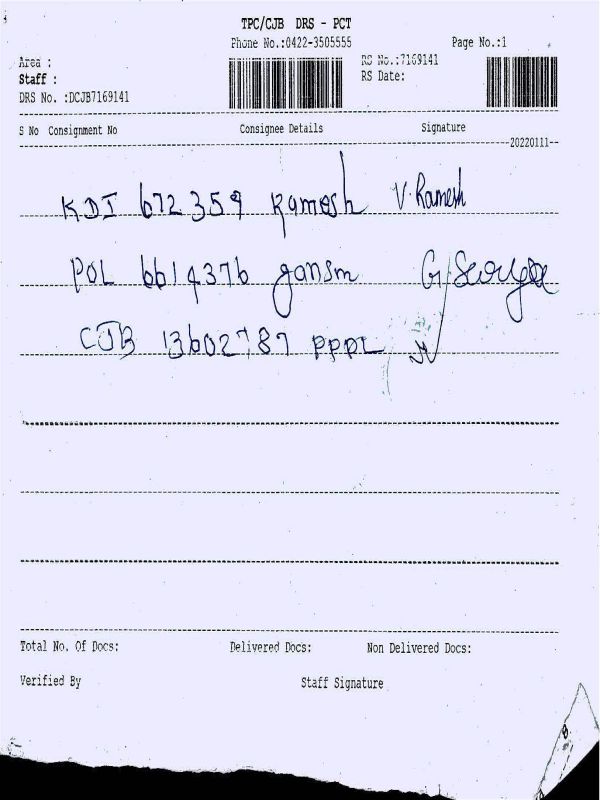 TPC/CJB DRS - PCT
Phone No.:0422-3505555 Page No.:1
Area : RS No.:7169141
Staff : RS Date:
DRS No. :DCJB7169141
S No Consignment No Consignee Details Signature
20220111
KDI 672359 Ramesh V.Ramesh
POL 6614376 gansm
CJB 13602787 PPPL
Total No. Of Docs: Delivered Docs: Non Delivered Docs:
Verified By Staff Signature